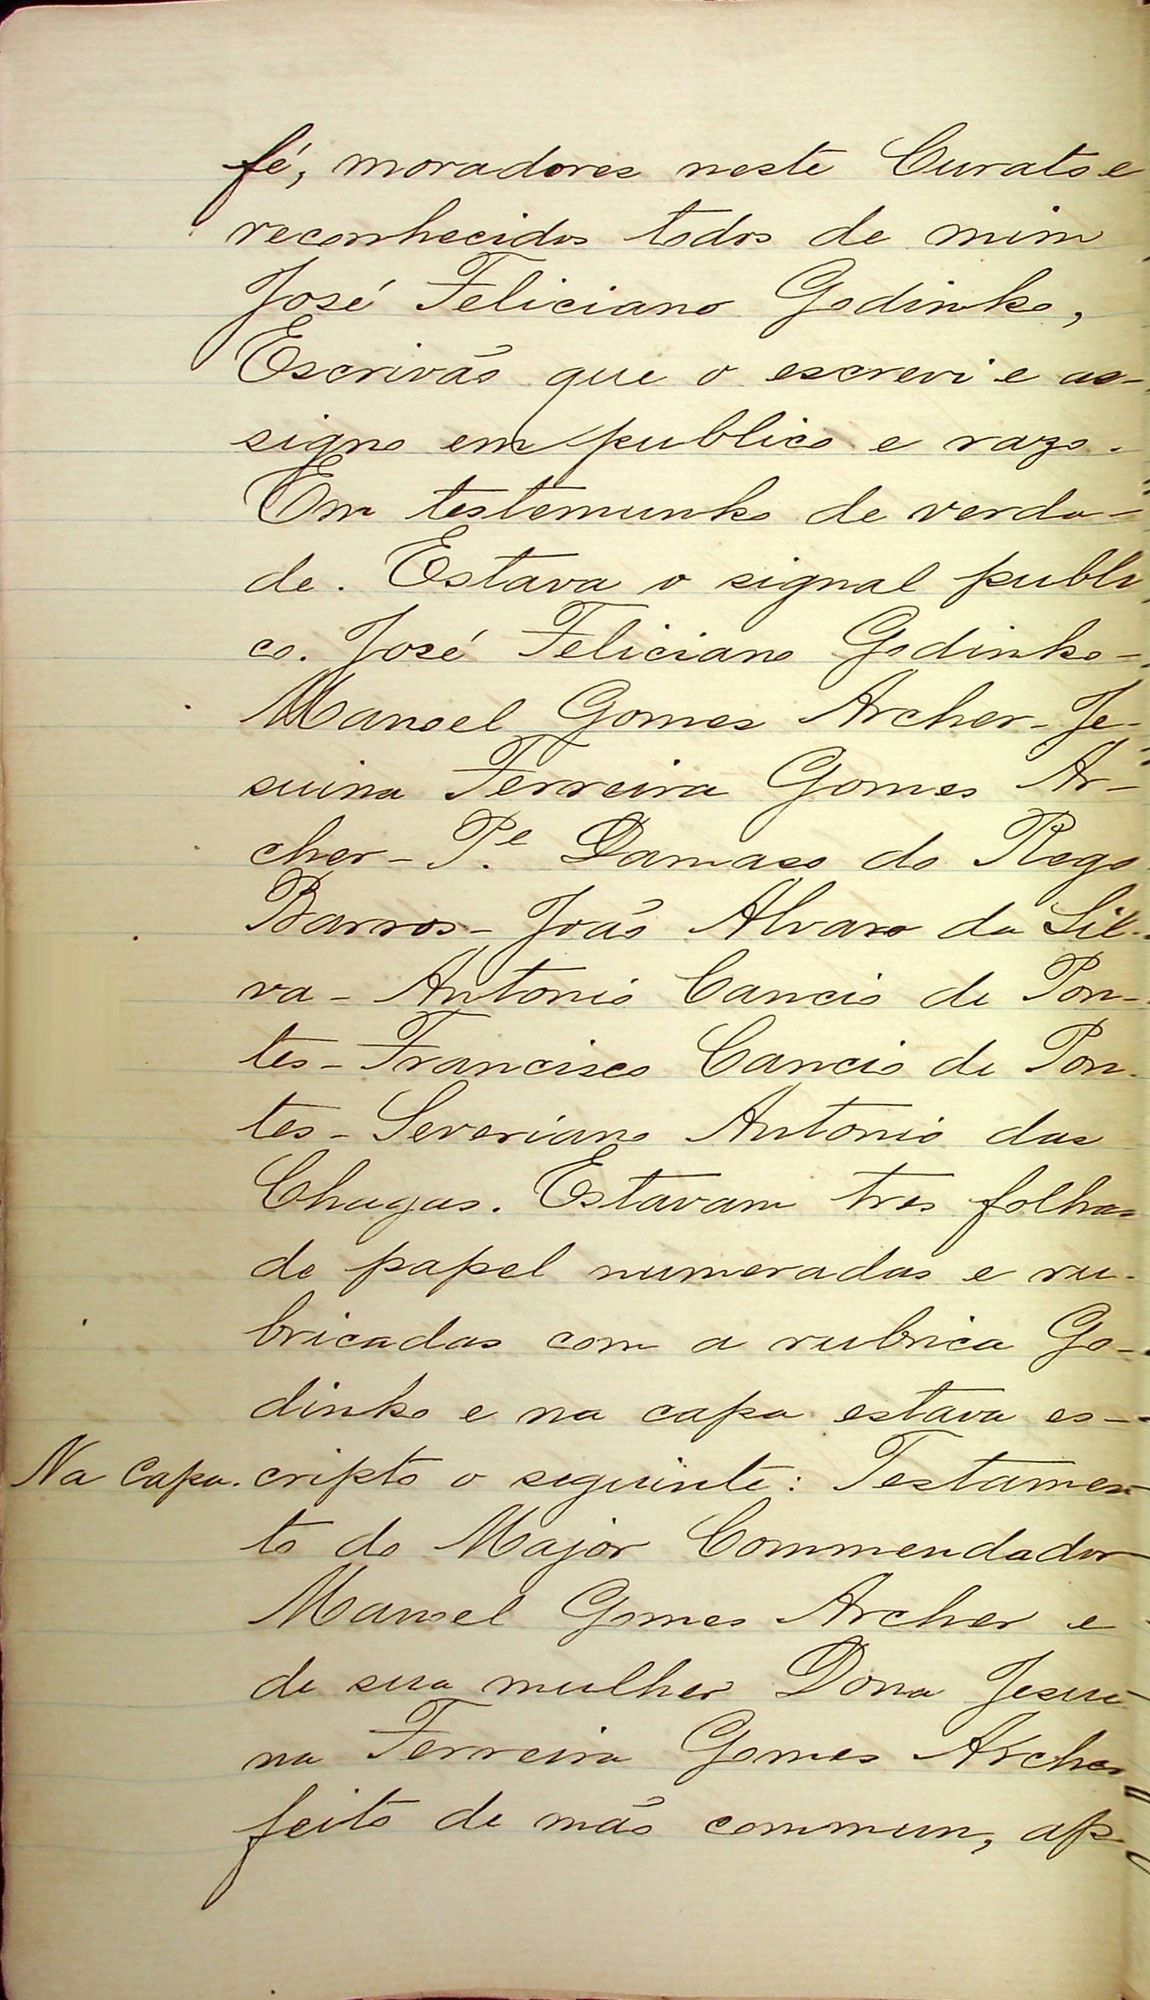 fé, moradores neste Curato e
reconhecidos todos de mim
José Feliciano Godinho,
Escrivão que o escrevi e as-
signo em publico e razo.
Em testemunho de verda-
de. Estava o signal publi
co. José Feliciano Godinho-
Manoel Gomes Archer - Je-
suina Ferreira Gomes Ar-
cher - Pe. Damaso do Rego
Barros - João Alvaro da Sil-
va - Antonio Cancio de Pon-
tes - Francisco Cancio de Pon-
tes - Severiano Antonio das
Chagas. Estavam tres folhas
de papel numeradas e ru-
bricadas com a rubrica Go-
dinho e na capa estava es-
Na capa. cripto o seguinte: Testamen
to do Major Commendador
Manoel Gomes Archer e
de sua mulher Dona Jesui
na Ferreira Gomes Archer
feito de mão commun, ap-